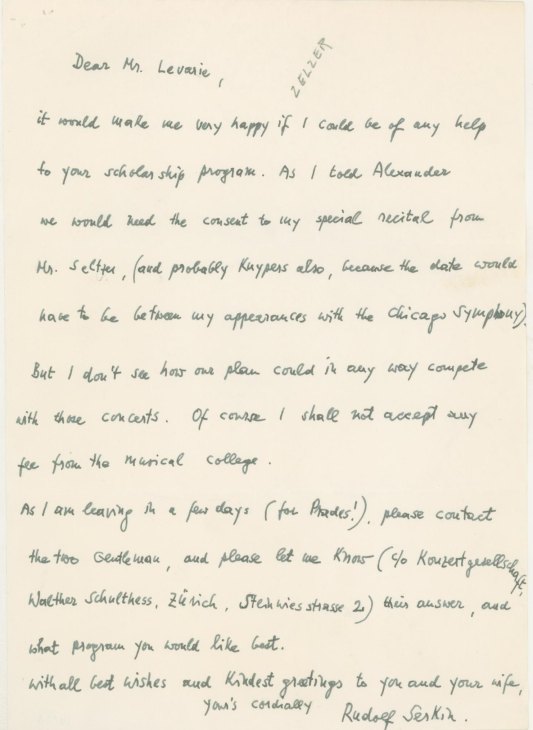 Dear Mr. Levarie,
ZELZER
it would make me very happy if I could be of any help
to your scholarship program. As I told Alexander
we would need the consent to my special recital from
Mr. Seltzer, (and probably Kuypers also, because the date would
have to be between my appearances with the Chicago Symphony).
But I don't see how our plan could in any way compete
with those concerts. Of course I shall not accept any
fee from the musical college.
As I am leaving in a few days (for Prades!), please contact
the two Gentleman, and please let me Know (c/o Konzertgesellschaft,
Walther Schulthess, Zürich, Steinwiesstrasse 2) their answer, and
what program you would like best.
with all best wishes and Kindest greetings to you and your wife,
your's cordially
Rudolf Serkin.